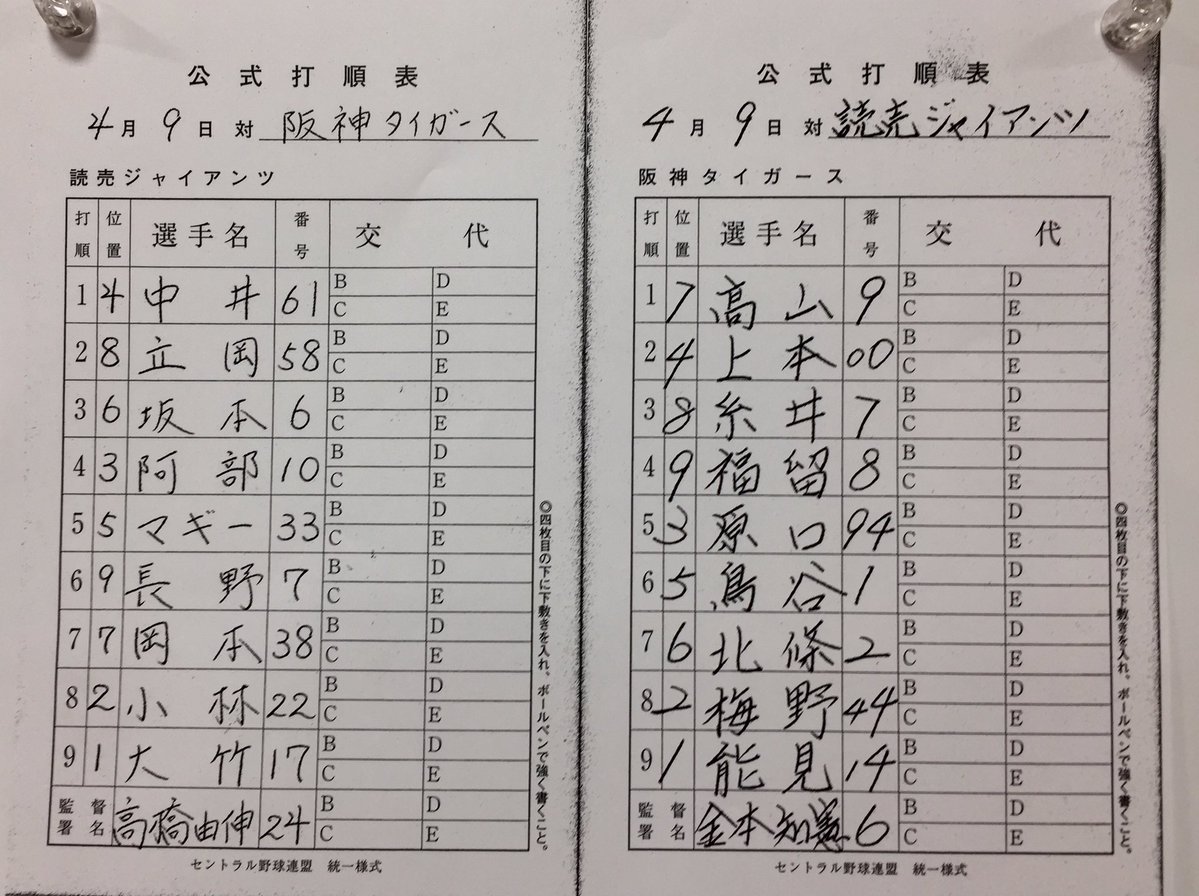 公式打順表
4月9日対 阪神タイガース
読売ジャイアンツ
打順 位置 選手名 番号 交代
1 4 中井 61 B D C E
2 8 立岡 58 B D C E
3 6 坂本 6 B D C E
4 3 阿部 10 B D C E
5 5 マギー 33 B D C E
6 9 長野 7 B D C E
7 7 岡本 38 B D C E
8 2 小林 22 B D C E
9 1 大竹 17 B D C E
監督署名 高橋由伸 24 B D C E
◎四枚目の下に下敷きを入れ。ボールペンで強く書くこと。
セントラル野球連盟 統一様式
公式打順表
4月9日対 読売ジャイアンツ
阪神タイガース
打順 位置 選手名 番号 交代
1 7 高山 9 B D C E
2 4 上本 00 B D C E
3 8 糸井 7 B D C E
4 9 福留 8 B D C E
5 3 原口 94 B D C E
6 5 鳥谷 1 B D C E
7 6 北條 2 B D C E
8 2 梅野 44 B D C E
9 1 能見 14 B D C E
監督署名 金本知憲 6 B D C E
◎四枚目の下に下敷きを入れ。ボールペンで強く書くこと。
セントラル野球連盟 統一様式